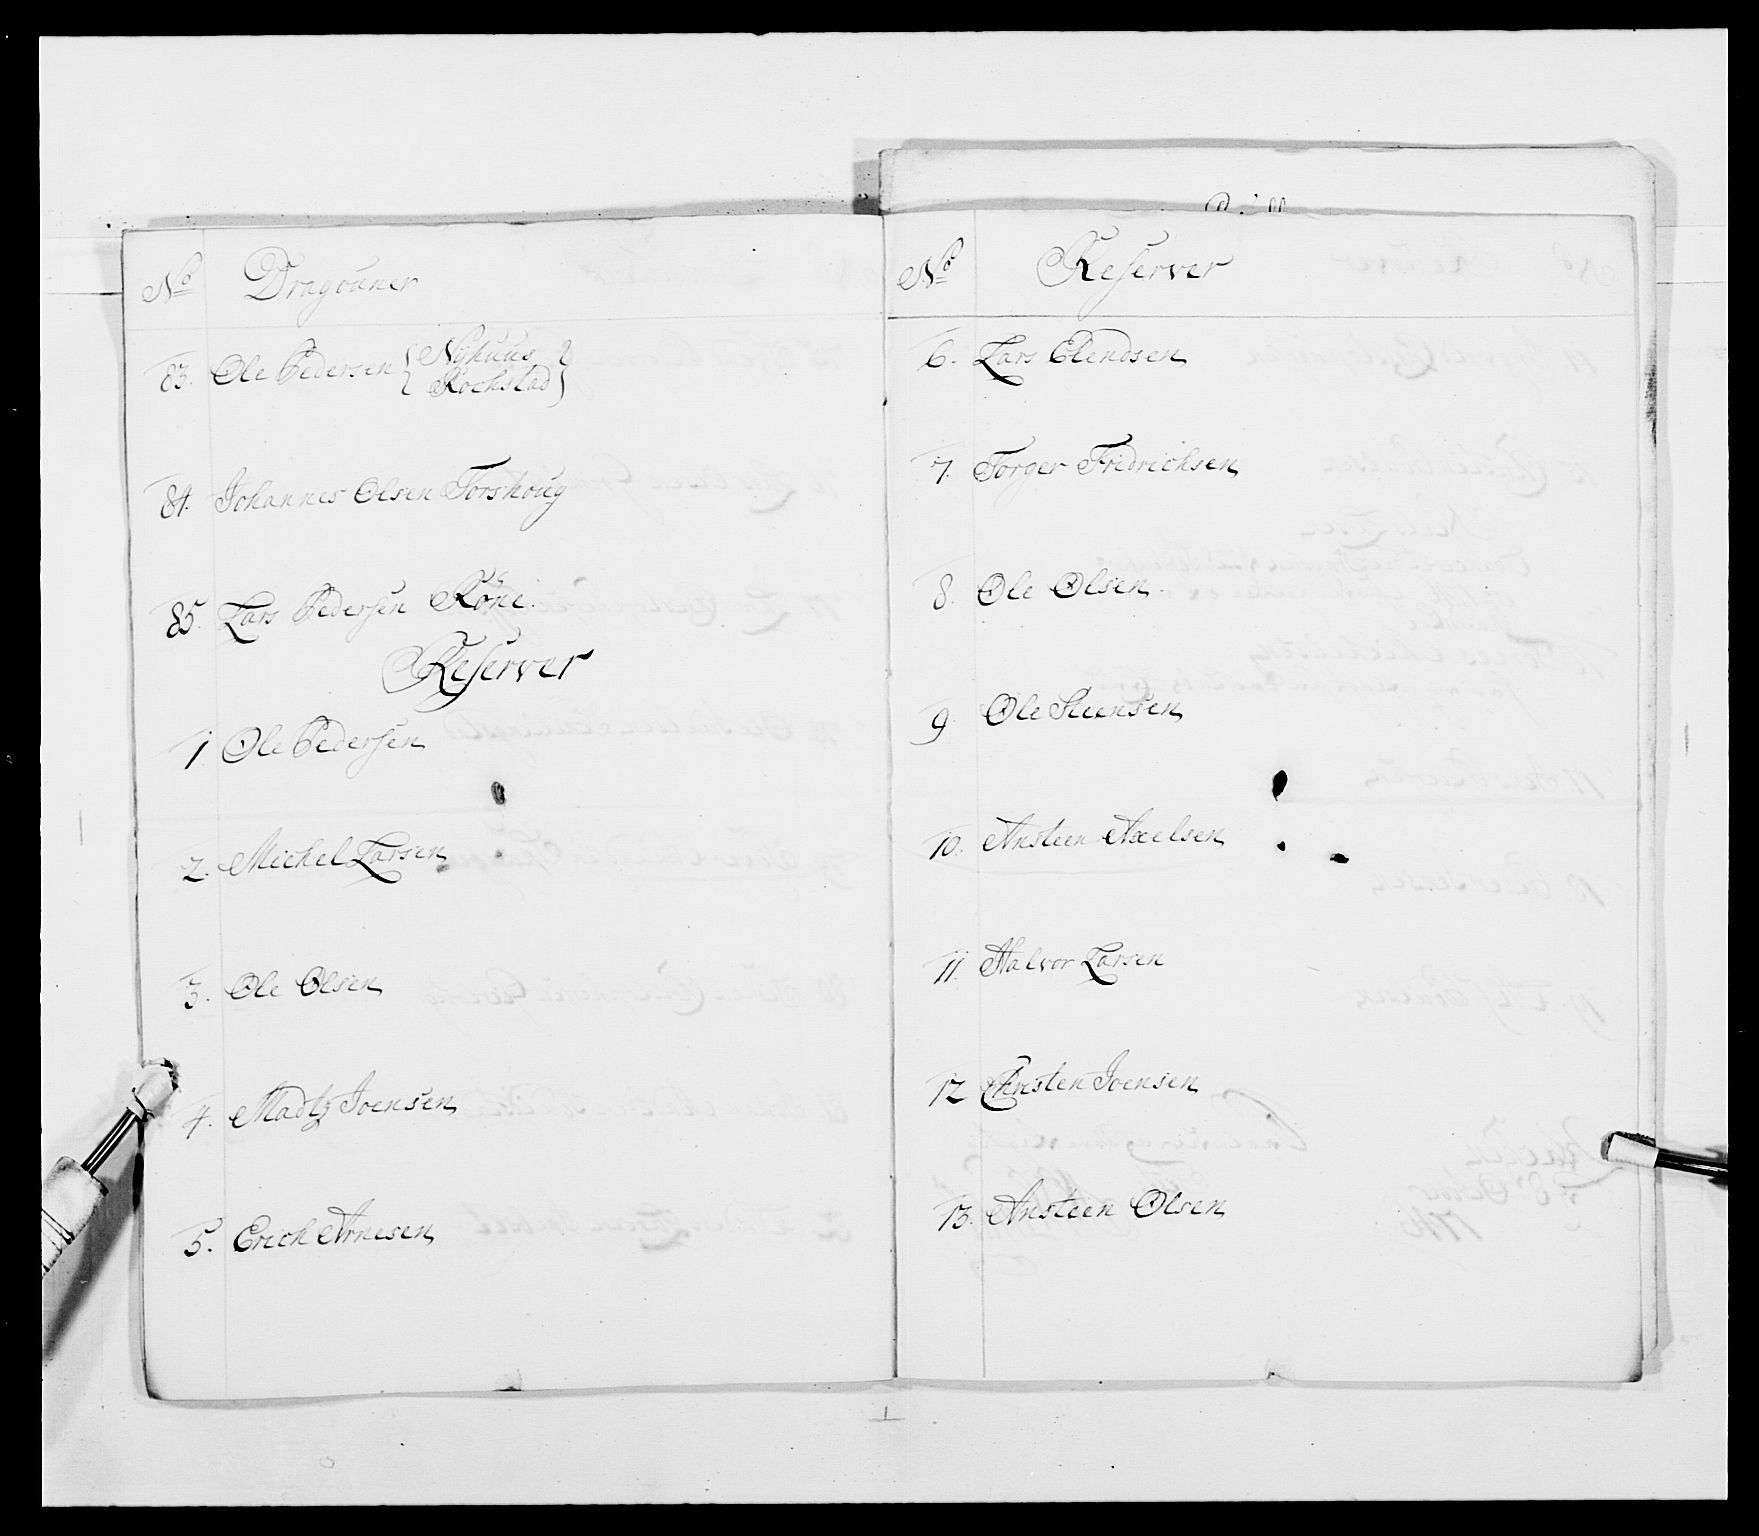 No Dragouner
83. Ole Pedersen { Nÿhuus
Rochstad }
84. Johannes Olsen Torshoug
85. Lars Pedersen Röne.
Reserver
1 Ole Pedersen
2. Michel Larsen
3. Ole Olsen
4. Madtz Joensen
5. Erich Arnesen
No Reserver
6. Lars Elendsen
7. Torger Fridrichsen
8. Ole Olsen.
9. Ole Steensen
10. Ansteen Axelsen
11. Halvor Larsen
12 Christen Joensen
13. Ansteen Olsen